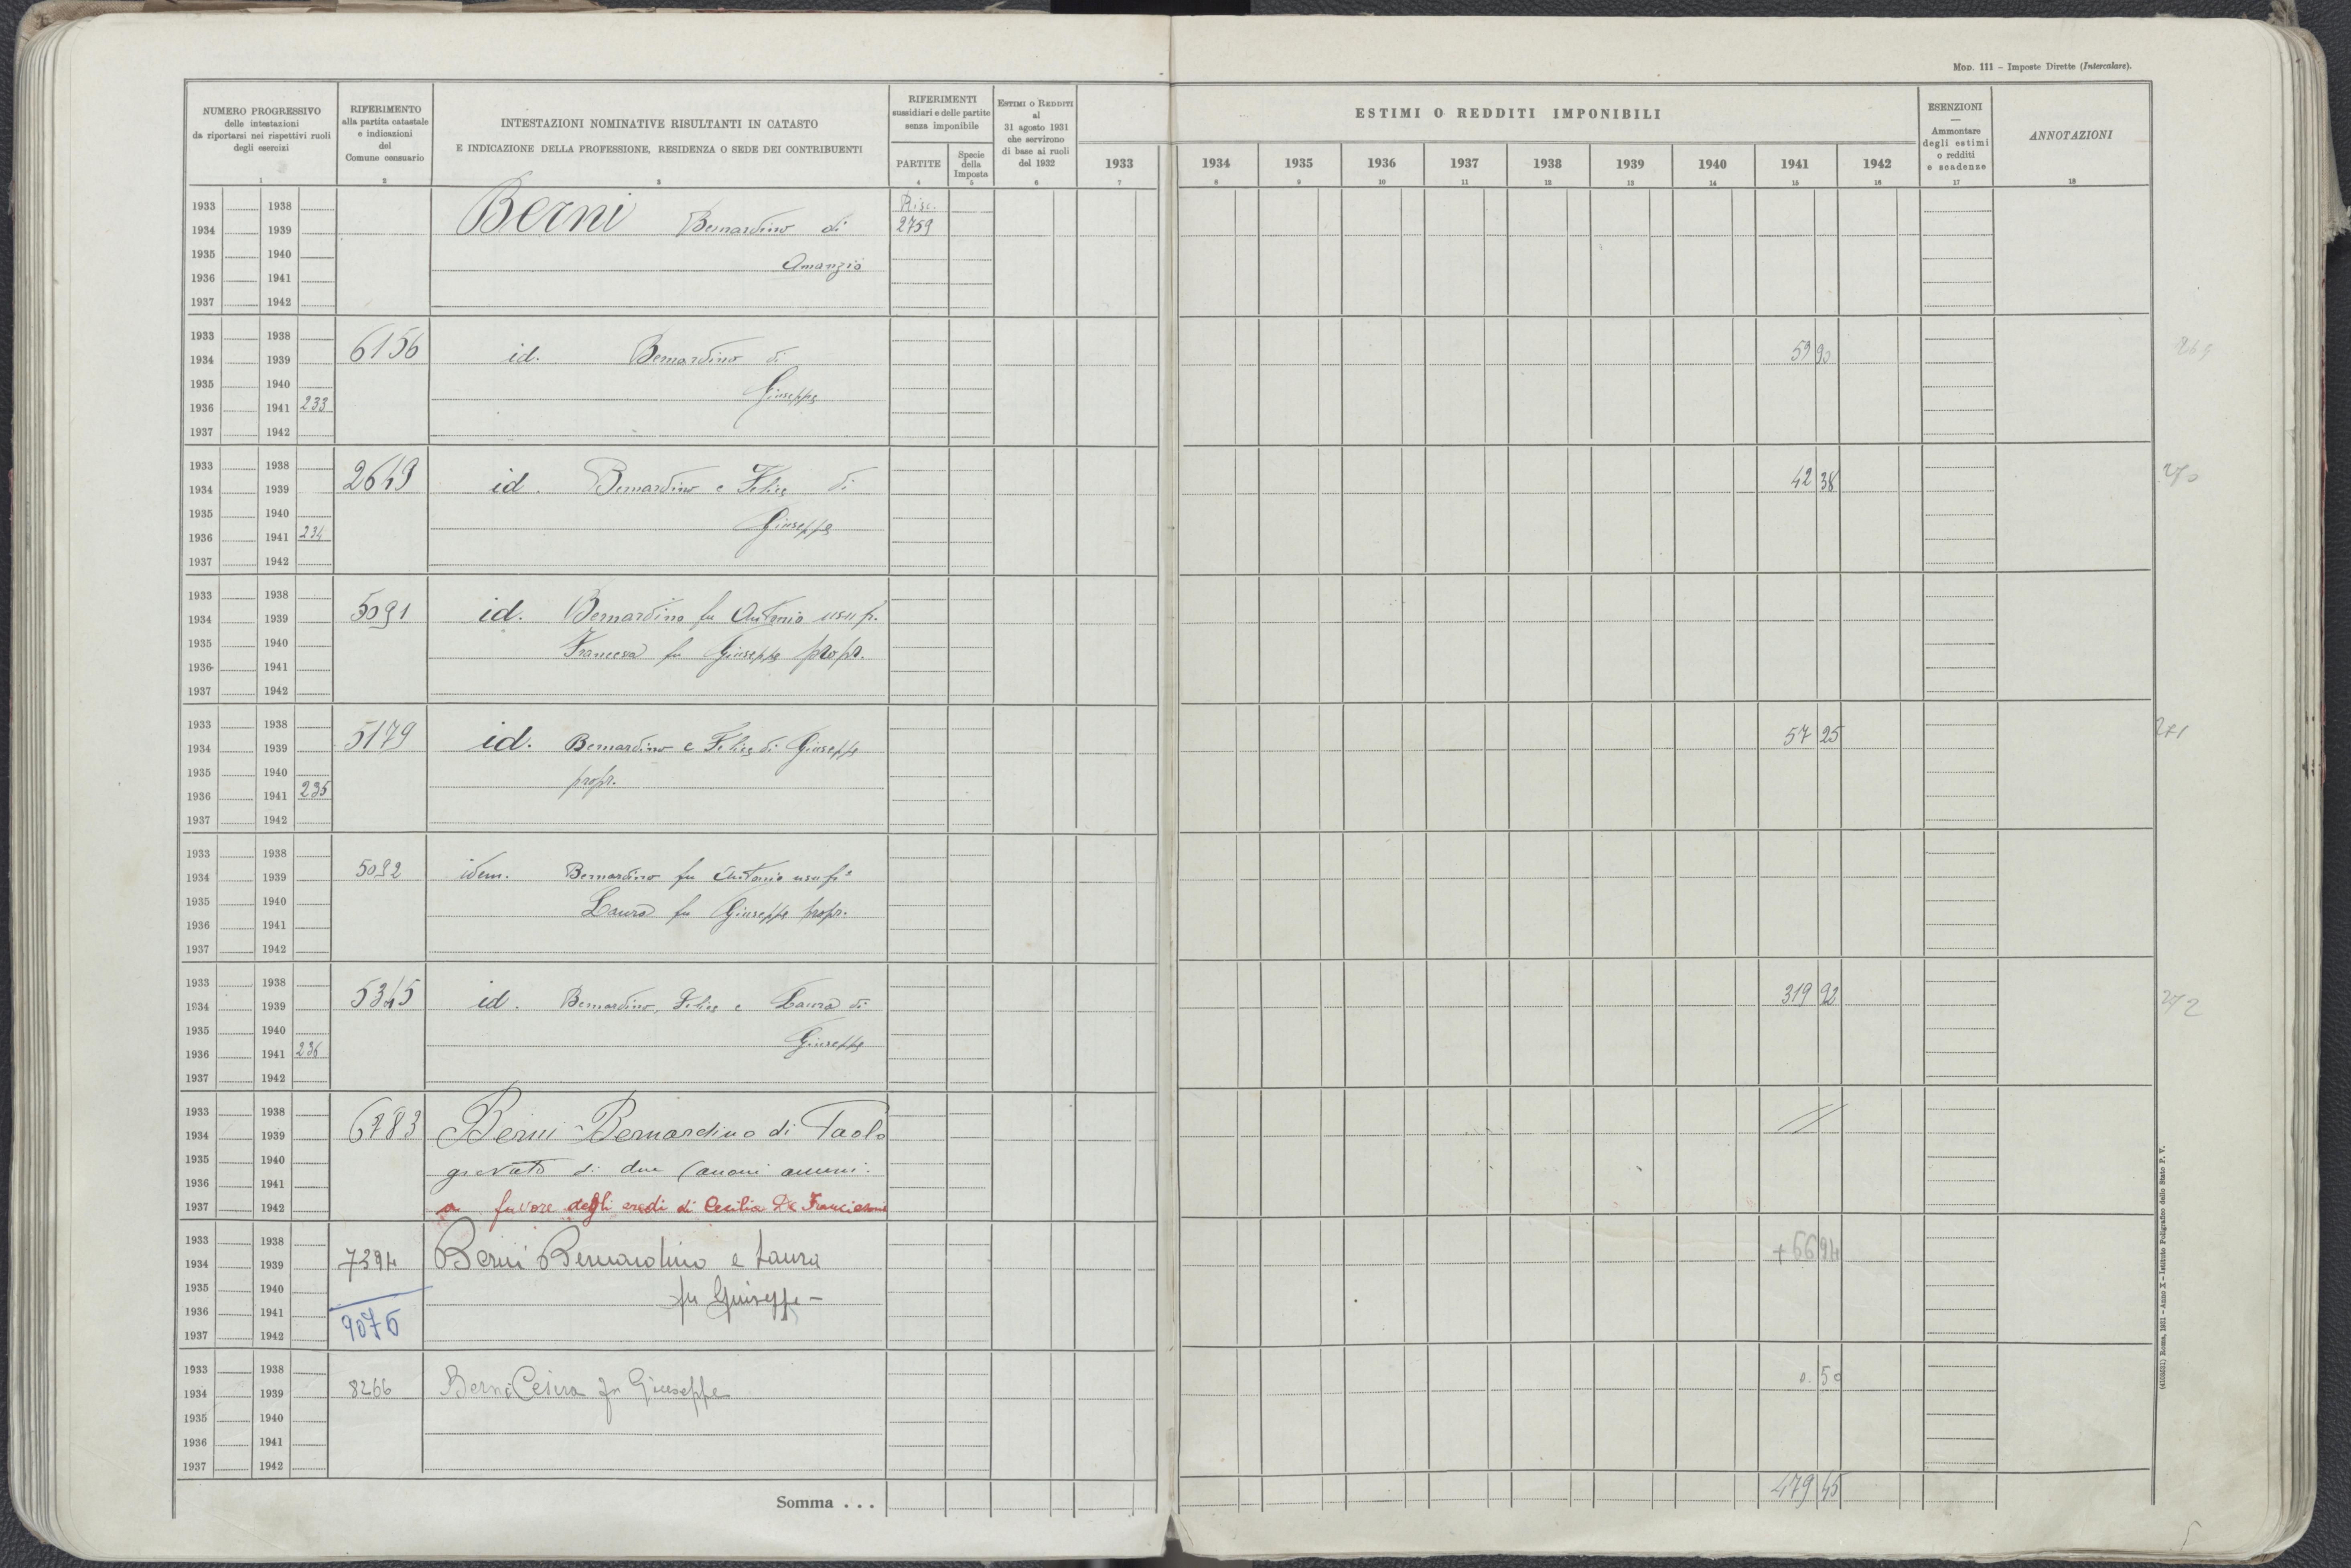 MOD. 111 - Imposte Dirette (Intercalare).
NUMERO PROGRESSIVO
delle intestazioni
da riportarsi nei rispettivi ruoli
degli esercizi
RIFERIMENTO
alla partita catastale
e indicazioni
del
Comune censuario
INTESTAZIONI NOMINATIVE RISULTANTI IN CATASTO
E INDICAZIONE DELLA PROFESSIONE, RESIDENZA O SEDE DEI CONTRIBUENTI
RIFERIMENTI
sussidiari e delle partite
senza imponibile
PARTITE
Specie
della
Imposta
ESTIMI O REDDITI
al
31 agosto 1931
che servirono
di base ai ruoli
del 1932
ESTIMI O REDDITI IMPONIBILI
1933 1934 1935 1936 1937 1938 1939 1940 1941 1942
ESENZIONI
—
Ammontare
degli estimi
o redditi
e scadenze
ANNOTAZIONI
1 2 3 4 5 6 7 8 9 10 11 12 13 14 15 16 17 18
1933 1938 Risc.
1934 1939 Berni Bernardino di 2759
1935 1940 Amanzio
1936 1941
1937 1942
1933 1938
1934 1939 6156 id. Bernardino di 59 90 269
1935 1940 Giuseppe
1936 1941 233
1937 1942
1933 1938
1934 1939 2649 id. Bernardino e Felice di 42 38 270
1935 1940 Giuseppe
1936 1941 234
1937 1942
1933 1938
1934 1939 5091 id. Bernardino fu Antonio usufr.
1935 1940 Francesca fu Giuseppe propr.
1936 1941
1937 1942
1933 1938
1934 1939 5179 id. Bernardino e Felice di Giuseppe 57 25 271
1935 1940 propr.
1936 1941 235
1937 1942
1933 1938
1934 1939 5092 idem. Bernardino fu Antonio usufr.
1935 1940 Laura fu Giuseppe propr.
1936 1941
1937 1942
1933 1938
1934 1939 5345 id. Bernardino, Felice e Laura di 319 92 272
1935 1940 Giuseppe
1936 1941 236
1937 1942
1933 1938
1934 1939 6783 Berni Bernardino di Paolo
1935 1940 gravato di due Canoni annui
1936 1941
1937 1942 a favore degli eredi di Cecilia De
1933 1938
1934 1939 7394 Berni Bernardino e Laura + 66 94
1935 1940 fu Giuseppe -
1936 1941 9076
1937 1942
1933 1938
1934 1939 8266 Berni Cesira fu Giuseppe 0. 50
1935 1940
1936 1941
1937 1942
Somma . . . 479 45
(4103531) Roma, 1931 - Anno X - Istituto Poligrafico dello Stato P. V.